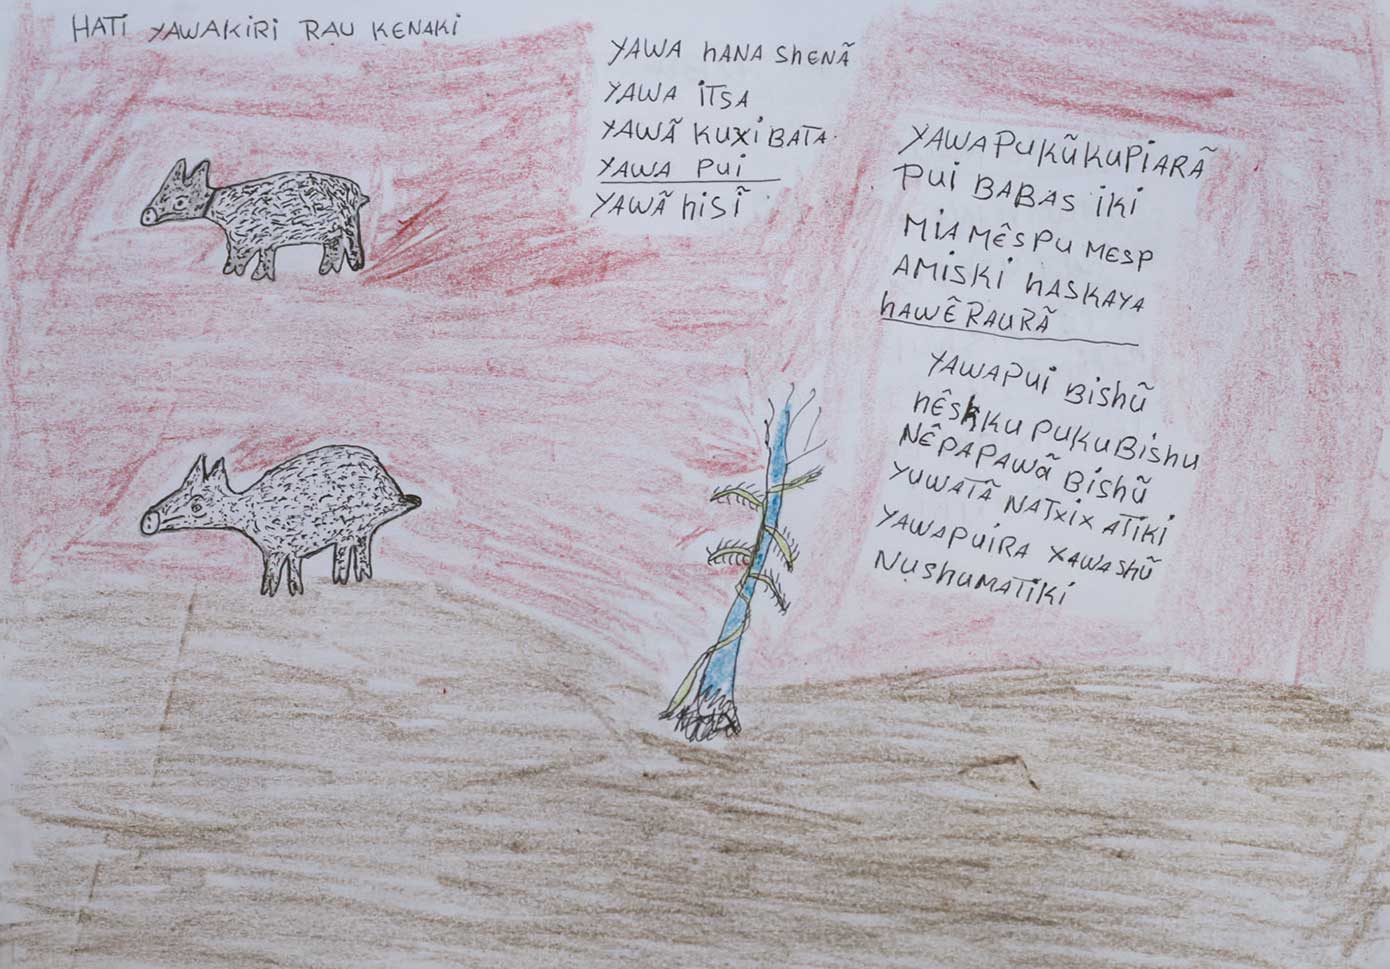 HATI YAWAKIRI RAU KENAKI
YAWA hANA ShENÃ
YAWA iTSA
YAWÃ KUXiBATA.
YAWA PUI
YAWÃ hiSĨ
YAWAPUKŨKUPiARÃ
PUI BABAS iKi
MiA MÊSPU MESP
AMiSKi hASKAYA
hAWÊRAURÃ
YAWAPUI BiShŨ
hÊSKKU PUKUBiShU
NÊPAPAWÃ BiShŨ
YUWATÃ NATXiX ATiKi
YAWAPUiRA XAWAShŨ
NUShUMATiKi